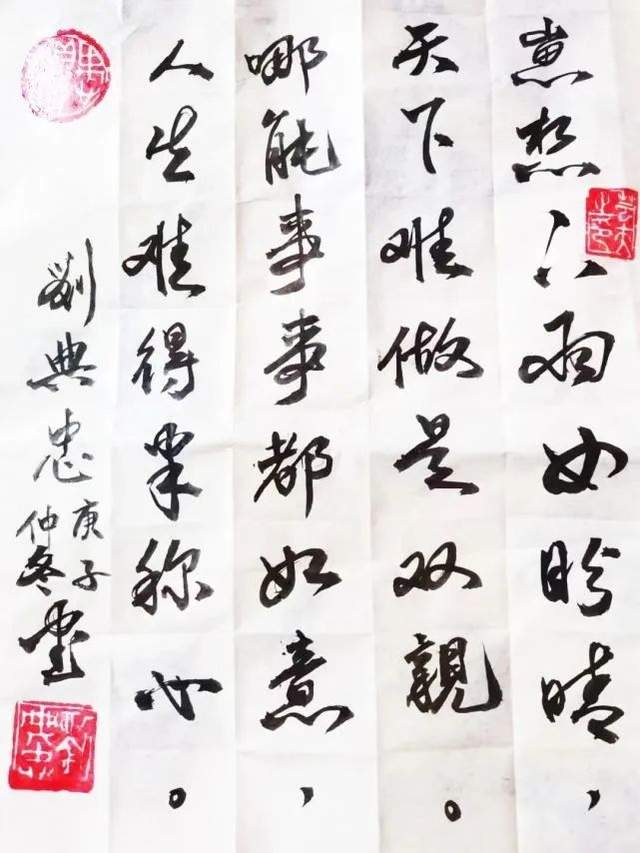 崽想下雨女盼晴，
天下难做是双親。
哪能事事都如意，
人生难得半称心。
劉典忠
庚子
仲冬
書